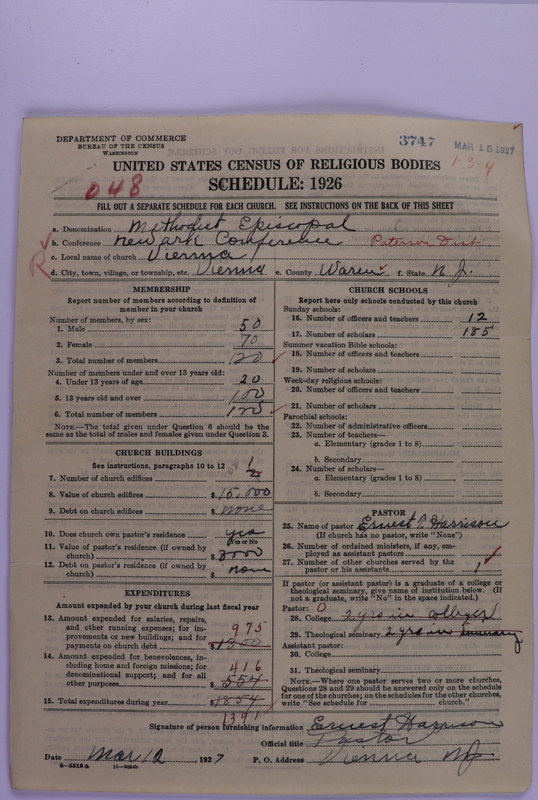 DEPARTMENT OF COMMERCE
BUREAU OF THE CENSUS
WASHINGTON
3747
MAR 15 1927
1-3-4
UNITED STATES CENSUS OF RELIGIOUS BODIES
SCHEDULE: 1926
048
FILL OUT A SEPARATE SCHEDULE FOR EACH CHURCH. SEE INSTRUCTIONS ON THE BACK OF THIS SHEET
a. Denomination Methodist Episcopal
b. Conference Newark Conference Paterson Dist.
c. Local name of church Vienna
d. City, town, village, or township, etc. Vienna e. County Waren f. State N. J.
R
MEMBERSHIP
Report number of members according to definition of
member in your church
Number of members, by sex:
1. Male 50
2. Female 70
3. Total number of members 120
Number of members under and over 13 years old:
4. Under 13 years of age 20
5. 13 years old and over 100
6. Total number of members 120
NOTE.—The total given under Question 6 should be the
same as the total of males and females given under Question 3.
CHURCH BUILDINGS
See instructions, paragraphs 10 to 12
7. Number of church edifices 1
8. Value of church edifices $ 10,000
9. Debt on church edifices $ none
10. Does church own pastor's residence yes
Yes or No
11. Value of pastor's residence (if owned by
church) $ 3000
12. Debt on pastor's residence (if owned by
church) $ none
EXPENDITURES
Amount expended by your church during last fiscal year
13. Amount expended for salaries, repairs,
and other running expenses; for im-
provements or new buildings; and for
payments on church debt $ 1300
975
14. Amount expended for benevolences, in-
cluding home and foreign missions; for
denominational support; and for all
other purposes $ 554
416
15. Total expenditures during year $ 1854
1391
CHURCH SCHOOLS
Report here only schools conducted by this church
Sunday schools:
16. Number of officers and teachers 12
17. Number of scholars 185
Summer vacation Bible schools:
18. Number of officers and teachers
19. Number of scholars
Week-day religious schools:
20. Number of officers and teachers
21. Number of scholars
Parochial schools:
22. Number of administrative officers
23. Number of teachers—
a. Elementary (grades 1 to 8)
b. Secondary
24. Number of scholars—
a. Elementary (grades 1 to 8)
b. Secondary
PASTOR
25. Name of pastor Ernest T. Harrison
(If church has no pastor, write "None")
26. Number of ordained ministers, if any, em-
ployed as assistant pastors
27. Number of other churches served by the
pastor or his assistants 1
If pastor (or assistant pastor) is a graduate of a college or
theological seminary, give name of institution below. (If
not a graduate, write "No" in the space indicated.)
Pastor: 0
28. College 2 yrs in college
29. Theological seminary 2 yrs in Seminary
Assistant pastor:
30. College
31. Theological seminary
NOTE.—Where one pastor serves two or more churches,
Questions 28 and 29 should be answered only on the schedule
for one of the churches; on the schedules for the other churches,
write "See schedule for church."
Signature of person furnishing information Ernest Harrison
Official title Pastor
Date Mar 12, 1927 P. O. Address Vienna NJ